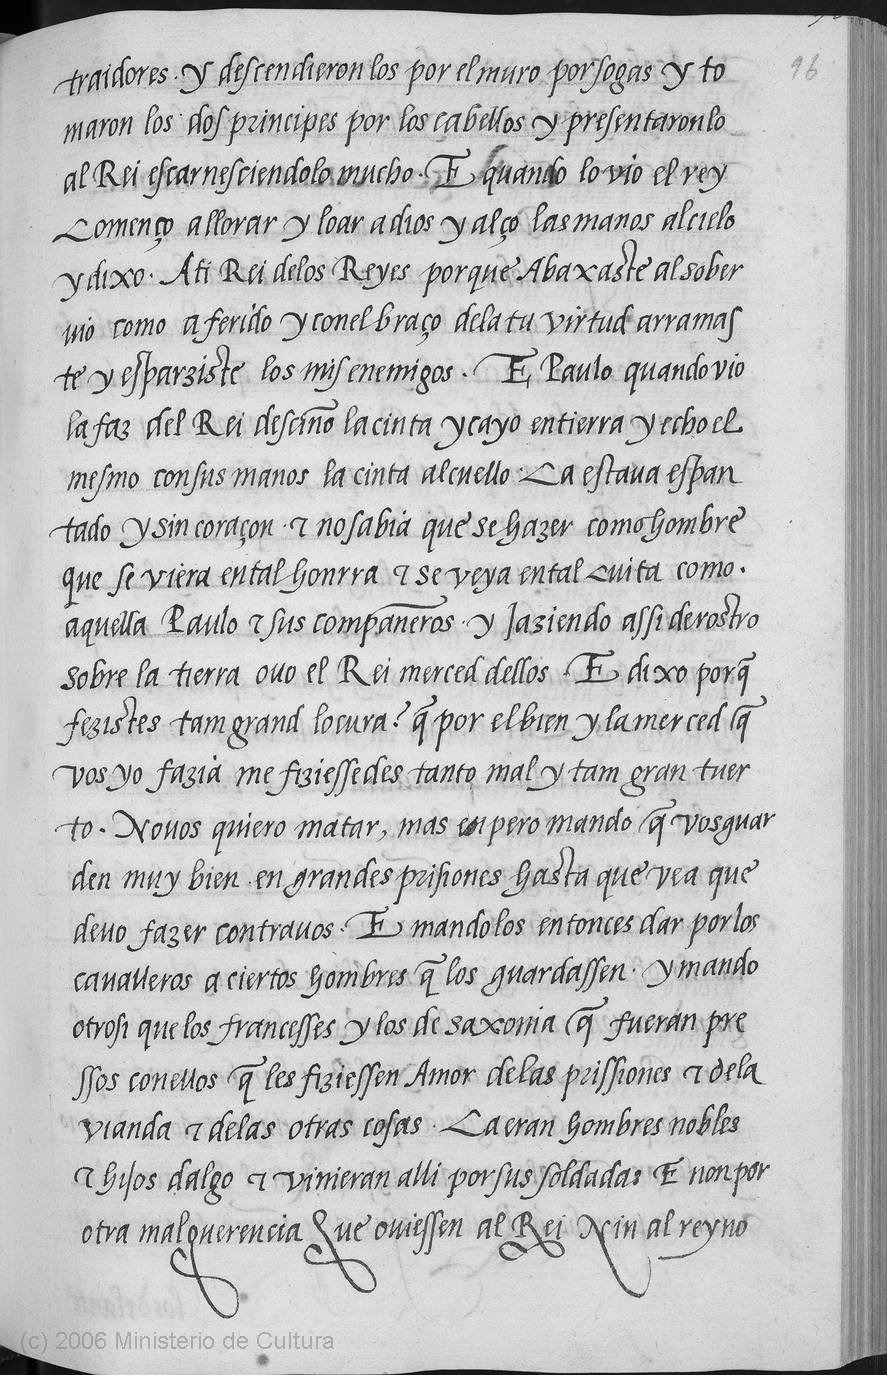 96
traidores. y descendieron los por el muro por sogas y to
maron los dos principes por los cabellos y presentaronlo
al Rei escarnesciendolo mucho. E quando lo vio el rey
Començo allorar y loar adios y alço las manos al cielo
y dixo. Ati Rei delos Reyes porque Abaxaste al sober
uio como aferido y conel braço dela tu virtud arramas
te y esparziste los mis enemigos. E Paulo quando vio
la faz del Rei desciño la cinta y cayo entierra y echo el
mesmo consus manos la cinta alcuello. Ca estaua espan
tado y sin coraçon. τ no sabia que se hazer como hombre
que se viera ental honrra τ se veya ental cuita como.
aquella Paulo τ sus compañeros. y Jaziendo assi derostro
sobre la tierra ouo el Rei merced dellos. E dixo porq̃
fezistes tam grand locura? q̃ por el bien y la merced q̃
vos yo fazia me fiziessedes tanto mal y tam gran tuer
to. No uos quiero matar, mas enpero mando q̃ vos guar
den muy bien en grandes prisiones hasta que vea que
deuo fazer contrauos. E mandolos entonces dar por los
caualleros a ciertos hombres q̃ los guardassen. y mando
otrosi que los francesses y los de saxonia q̃ fueran pre
ssos conellos q̃ les fiziessen Amor delas prissiones τ dela
vianda τ delas otras cosas. Ca eran hombres nobles
τ hijos dalgo τ vinieran alli por sus soldadas E non por
otra malquerencia Que ouiessen al Rei Nin al reyno
(c) 2006 Ministerio de Cultura